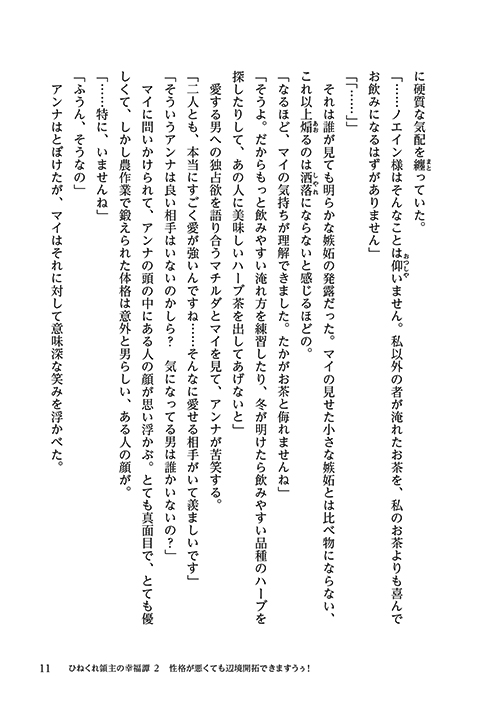 に硬質な気配を纏っていた。
「……ノエイン様はそんなことは仰いません。私以外の者が淹れたお茶を、私のお茶よりも喜んで
お飲みになるはずがありません」
「「……」」
それは誰が見ても明らかな嫉妬の発露だった。マイの見せた小さな嫉妬とは比べ物にならない、
これ以上煽るのは洒落にならないと感じるほどの。
「なるほど、マイの気持ちが理解できました。たかがお茶と侮れませんね」
「そうよ。だからもっと飲みやすい淹れ方を練習したり、冬が明けたら飲みやすい品種のハーブを
探したりして、あの人に美味しいハーブ茶を出してあげないと」
愛する男への独占欲を語り合うマチルダとマイを見て、アンナが苦笑する。
「二人とも、本当にすごく愛が強いんですね……そんなに愛せる相手がいて羨ましいです」
「そういうアンナは良い相手はいないのかしら？　気になってる男は誰かいないの？」
マイに問いかけられて、アンナの頭の中にある人の顔が思い浮かぶ。とても真面目で、とても優
しくて、しかし農作業で鍛えられた体格は意外と男らしい、ある人の顔が。
「……特に、いませんね」
「ふうん、そうなの」
アンナはとぼけたが、マイはそれに対して意味深な笑みを浮かべた。
11　ひねくれ領主の幸福譚 2　性格が悪くても辺境開拓できますうぅ！